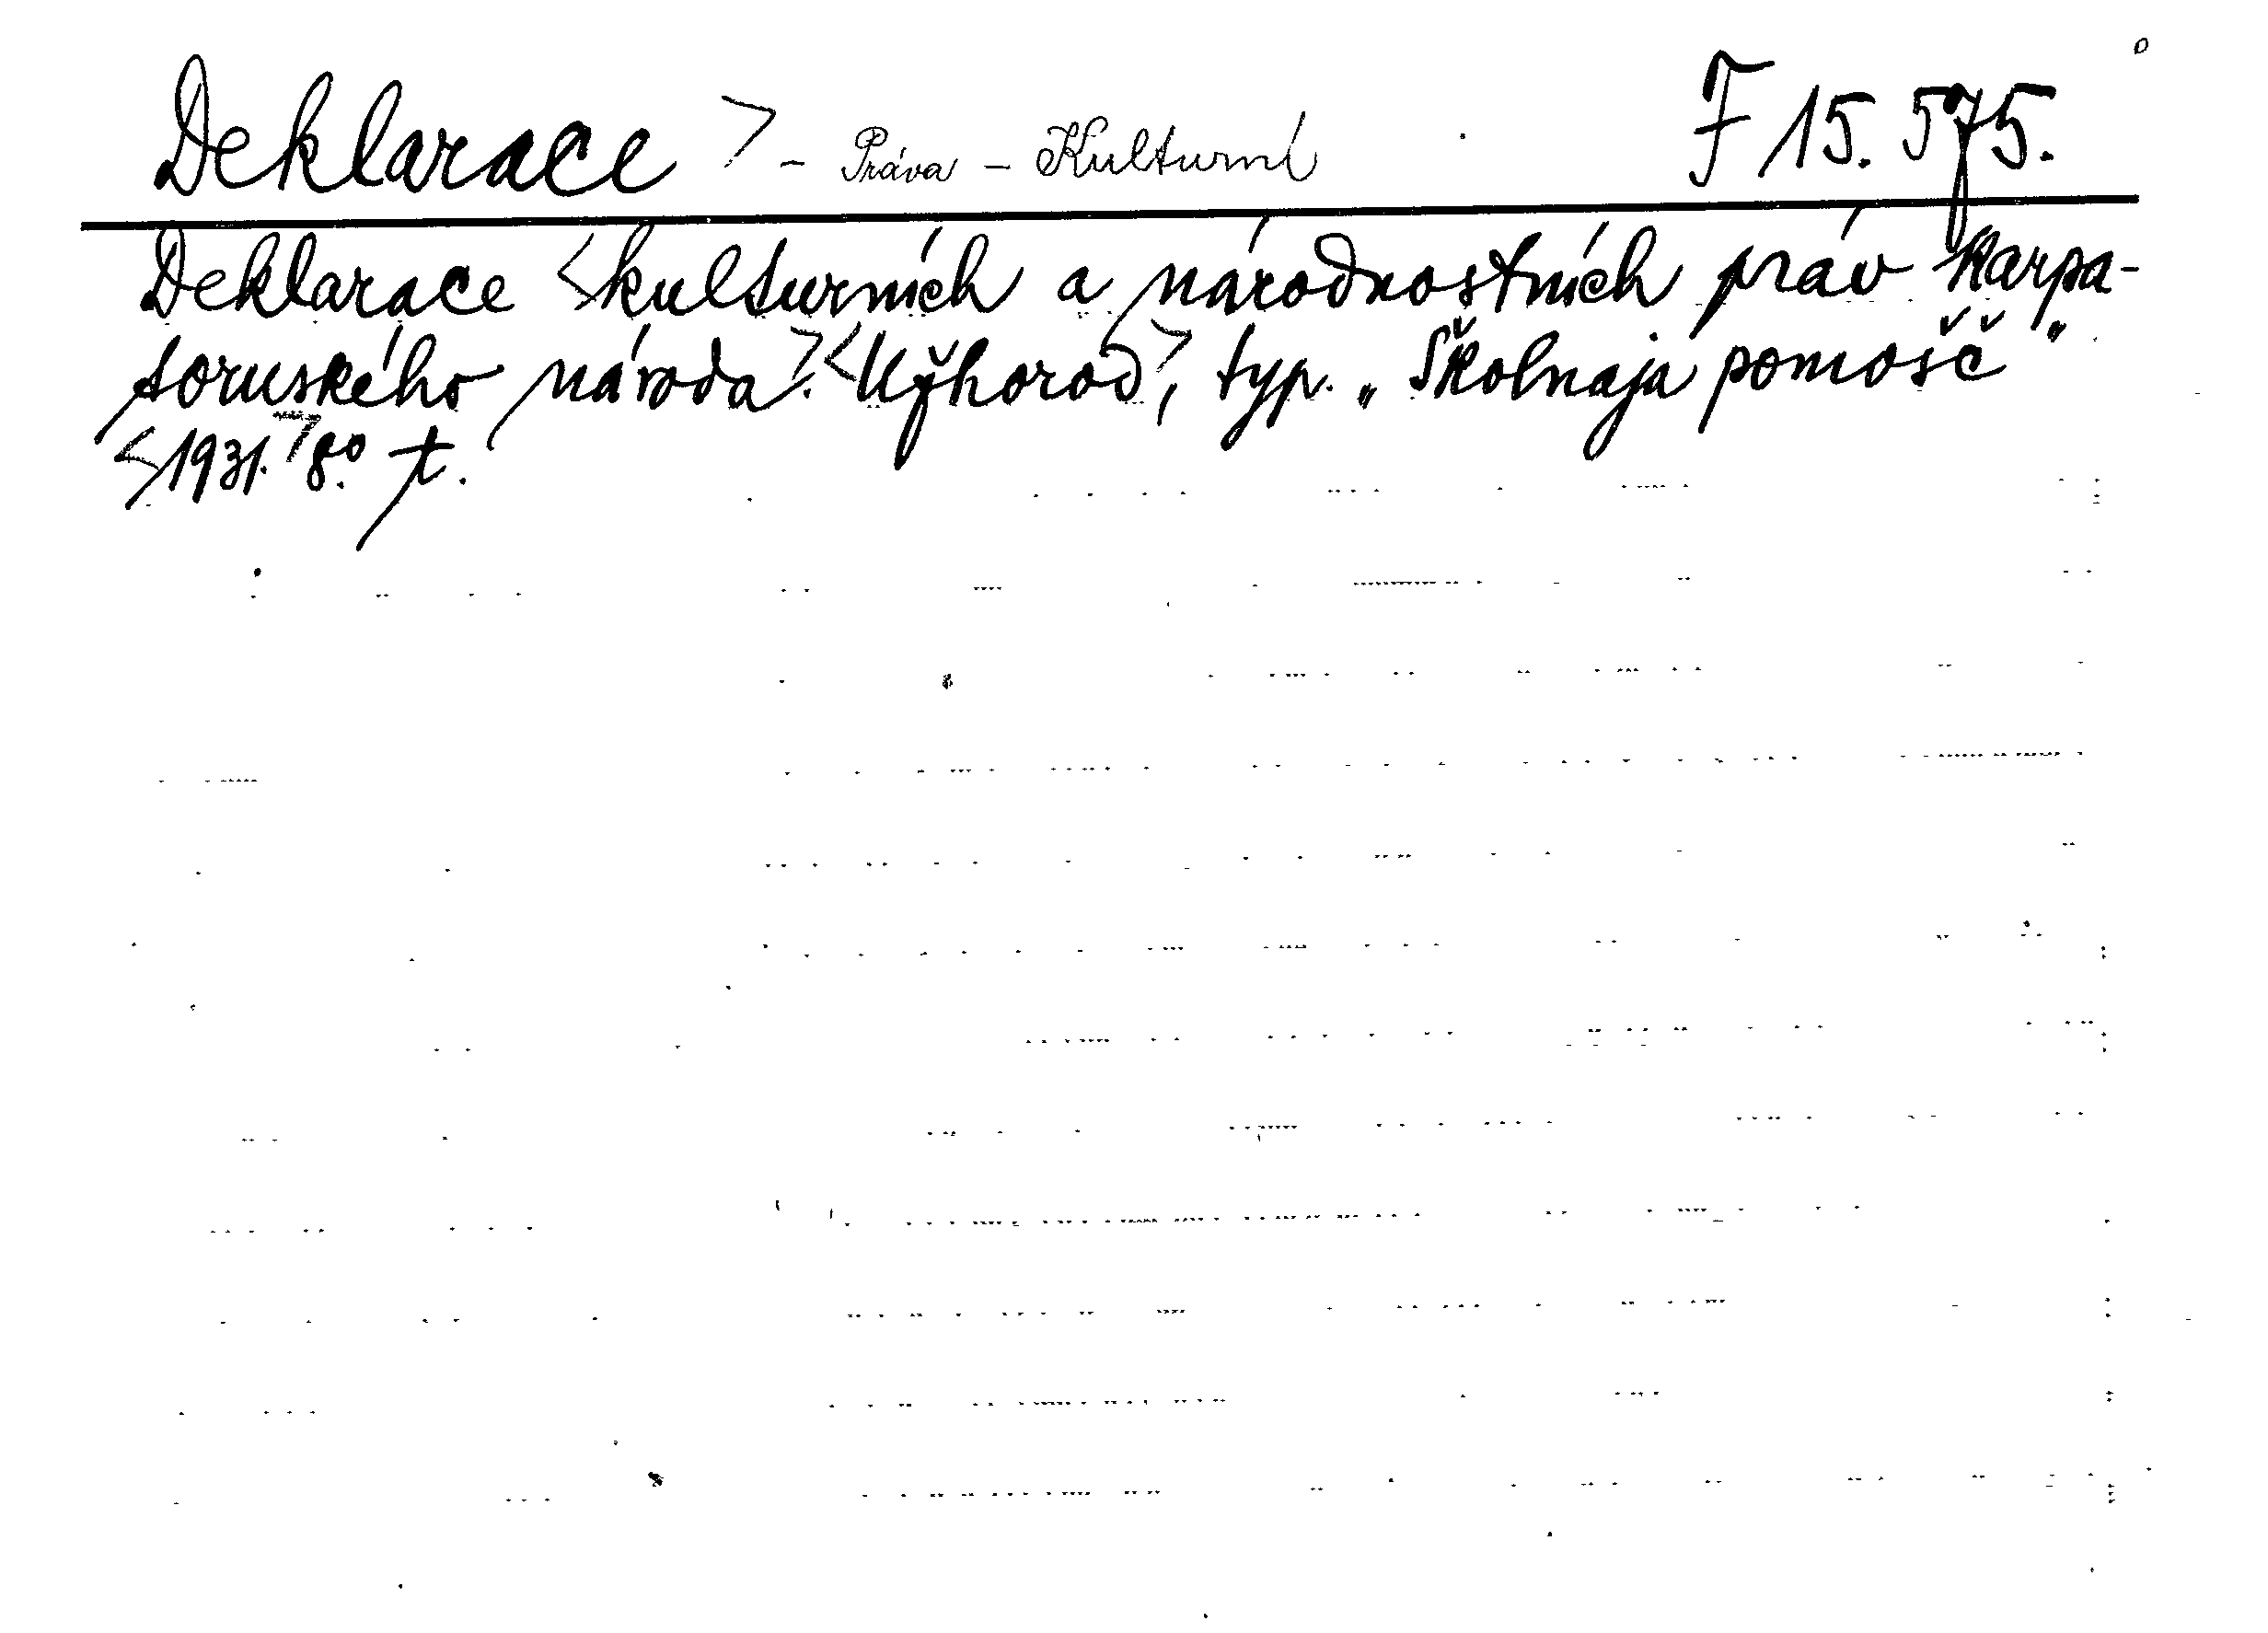 Deklarace > - Práva - Kulturní F 15.575.
Deklarace <kulturních a národnostních práv karpa-
toruského národa>. <Užhorod>, typ. „Školnaja pomošč"
<1931.> 8.° t.